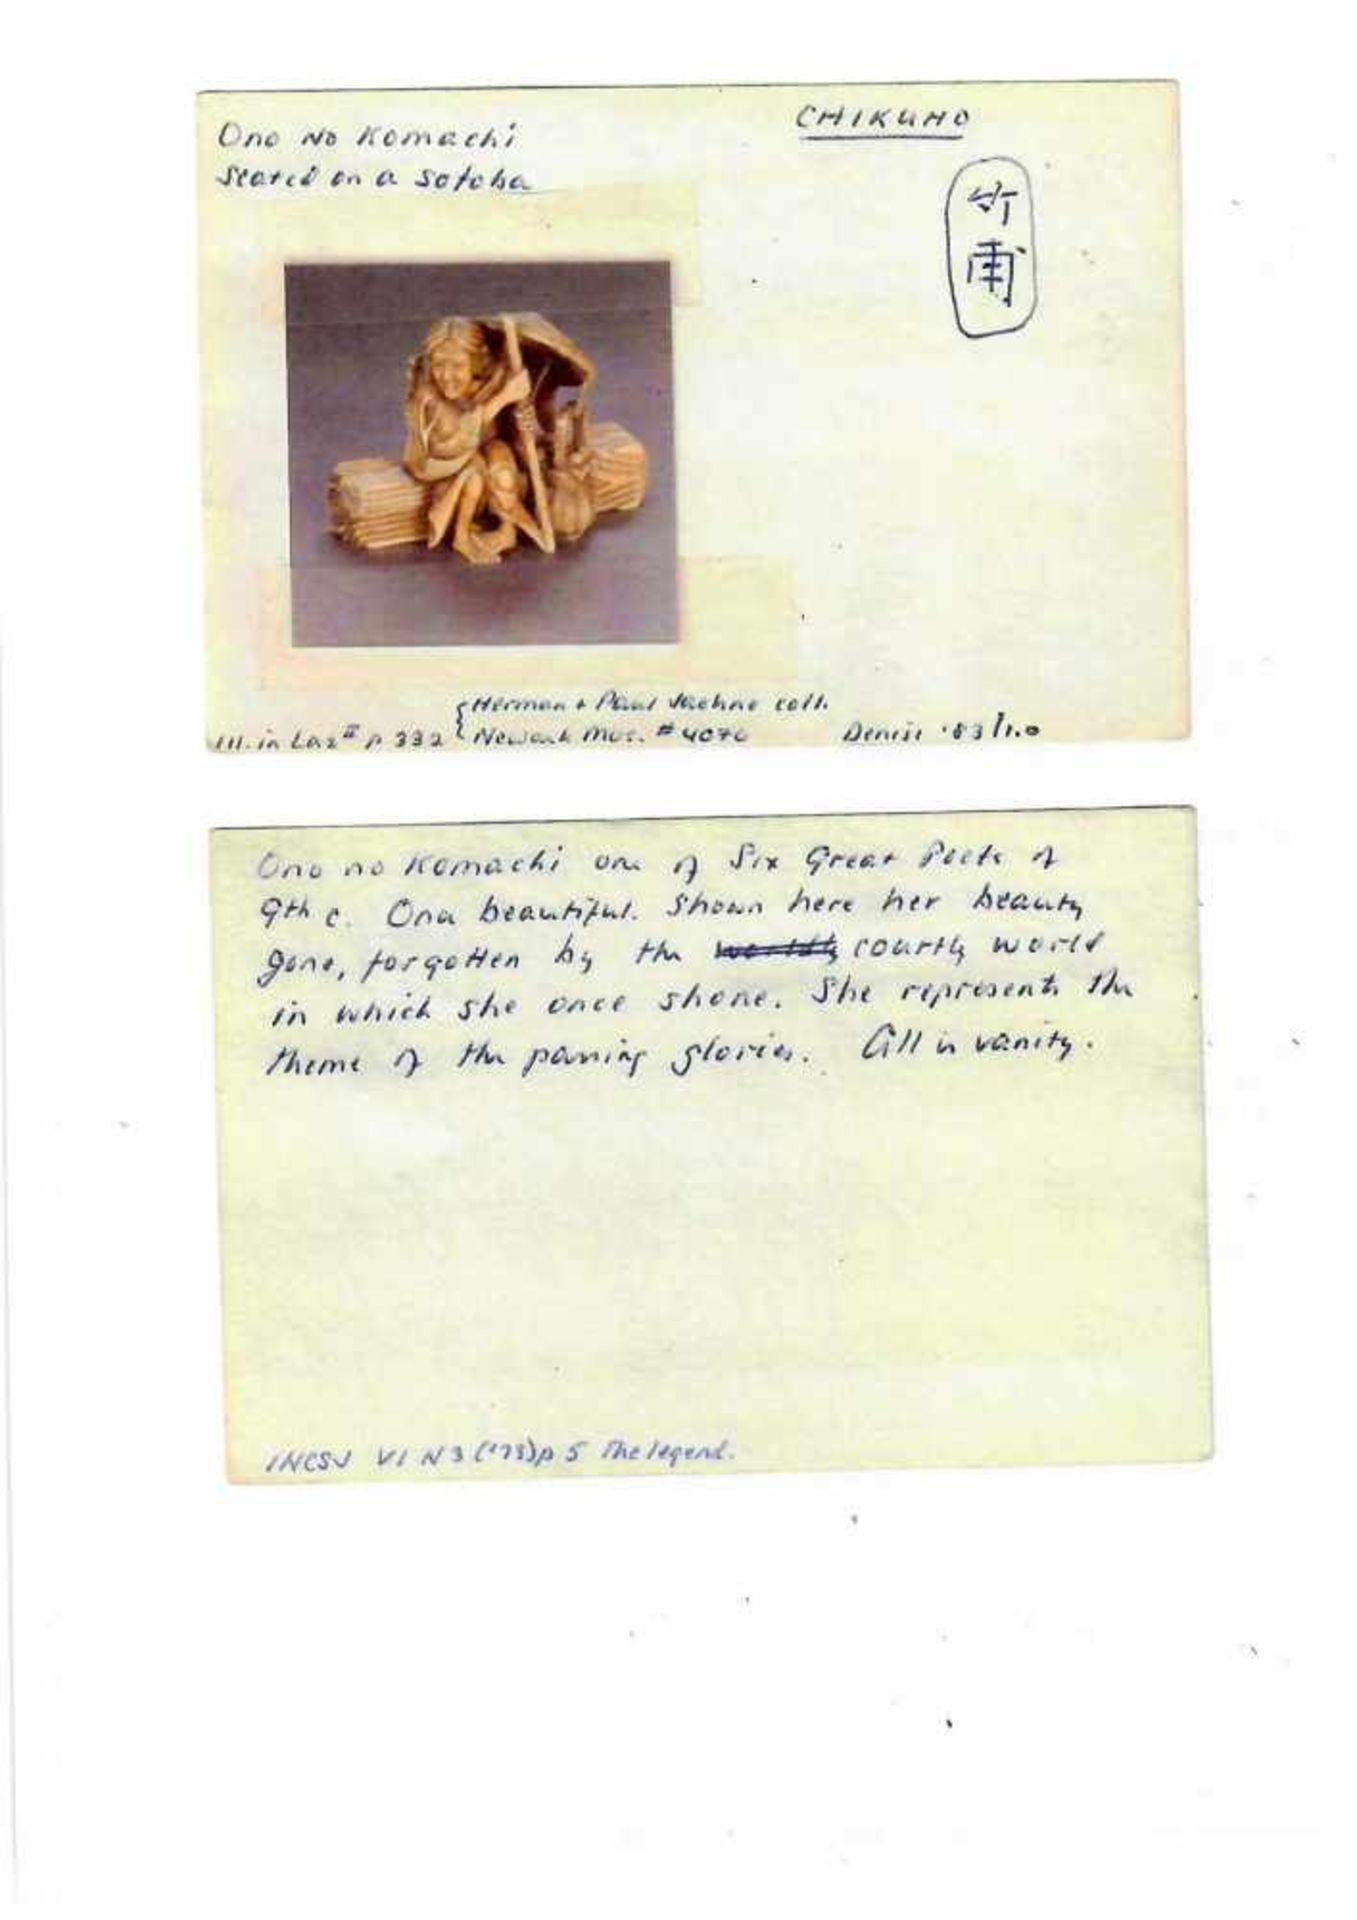 Ono no Komachi
Seated on a Sotoba
CHIKUHO
竹
甫
Herman + Paul Jaehne coll.
Ill. in Laz II p 332
Newark Mus. # 4076
Denise '83/1.0
Ono no Komachi one of Six Great Poets of
9th c. Once beautiful. Shown here her beauty
gone, forgotten by the courtly world
in which she once shone. She represents the
theme of the passing glories. All is vanity.
INCSJ V1 N3 ('73) p 5 The legend.